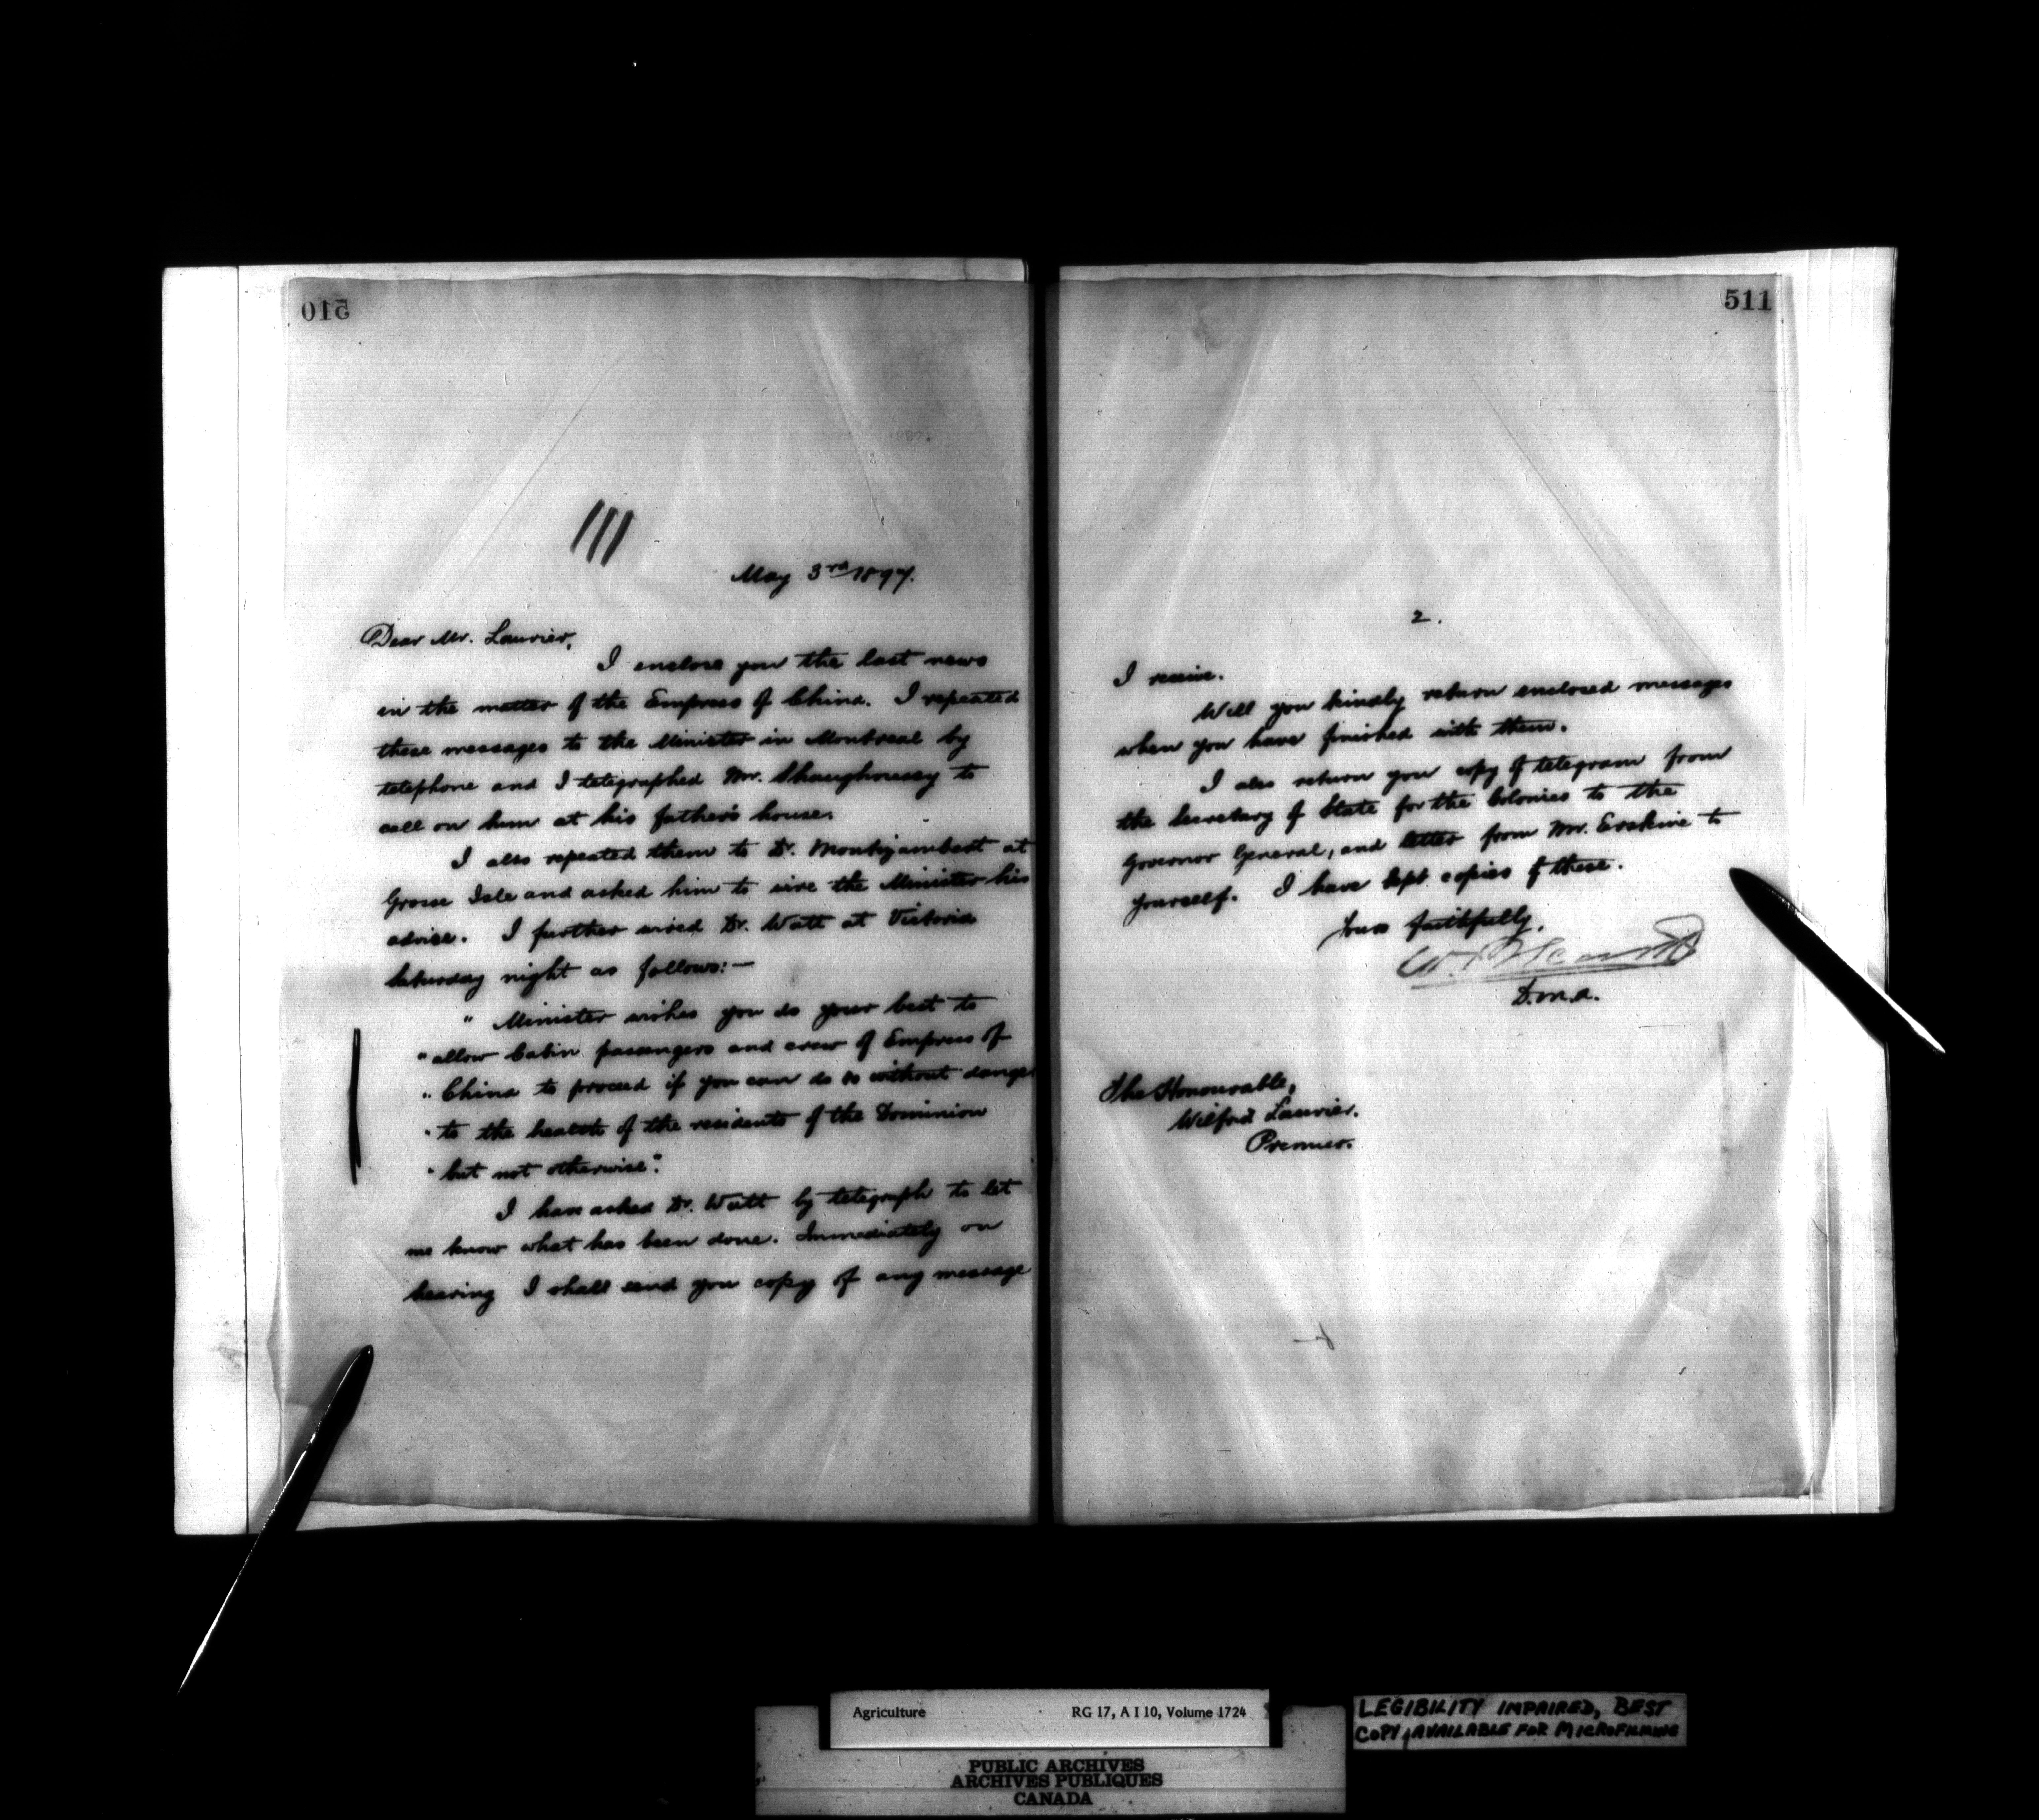 510
May 3rd 1897.
Dear Mr. Laurier,
I enclose you the last news
in the matter of the Empress of China. I repeated
these messages to the Minister in Montreal by
telephone and I telegraphed Mr. Shaughnessy to
call on him at his father's house.
I also repeated them to Dr. Montizambert at
Grosse Isle and asked him to wire the Minister his
advice. I further wired Dr. Watt at Victoria
Saturday night as follows:—
" Minister wishes you do your best to
" allow Cabin passengers and crew of Empress of
" China to proceed if you can do so without danger
" to the health of the residents of the Dominion
" but not otherwise".
I have asked Dr. Watt by telegraph to let
me know what has been done. Immediately on
hearing I shall send you copy of any message
511
2.
I receive.
Will you kindly return enclosed messages
when you have finished with them.
I also return you copy of telegram from
the Secretary of State for the Colonies to the
Governor General, and letter from Mr. Erskine to
yourself. I have kept copies of these.
Yours faithfully,
D.M.A.
The Honourable,
Wilfrid Laurier.
Premier.
Agriculture RG 17, A I 10, Volume 1724
PUBLIC ARCHIVES
ARCHIVES PUBLIQUES
CANADA
LEGIBILITY IMPAIRED, BEST
COPY AVAILABLE FOR MICROFILMING